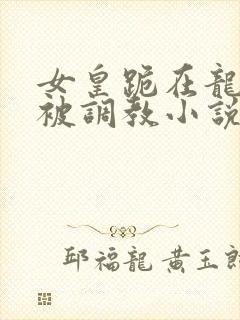 女皇跪在龍
被調教小說
邱福龍 黃玉郎